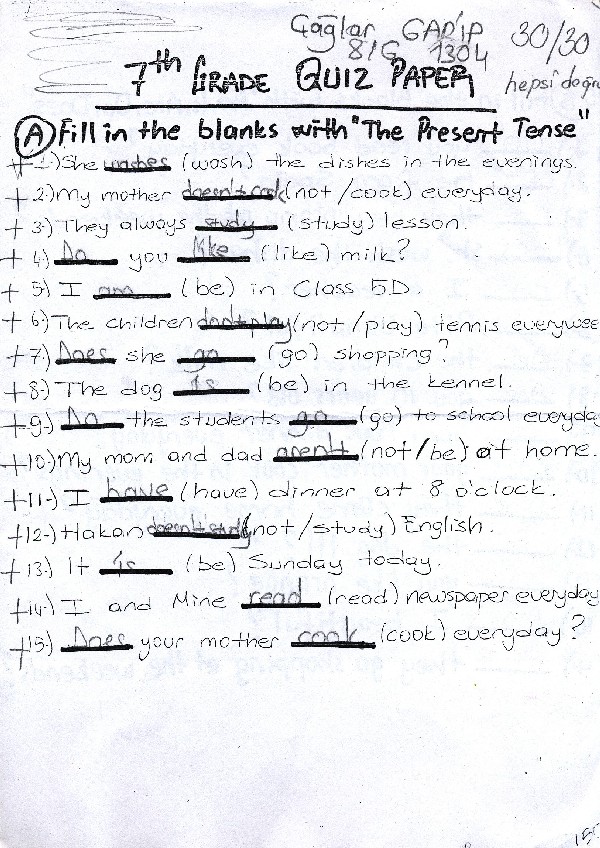 Çağlar GARİP 30/30
8/G 1304
7th GRADE QUIZ PAPER hepsi doğru
A Fill in the blanks with "The Present Tense"
+ 1-) She washes (wash) the dishes in the evenings.
+ 2-) My mother doesn't cook (not/cook) everyday.
+ 3-) They always study (study) lesson.
+ 4-) Do you like (like) milk?
+ 5-) I am (be) in Class 5D.
+ 6-) The children don't play (not/play) tennis everywee
+ 7-) Does she go (go) shopping?
+ 8-) The dog is (be) in the kennel.
+ 9-) Do the students go (go) to school everyday
+ 10-) My mom and dad aren't (not/be) at home.
+ 11-) I have (have) dinner at 8 o'clock.
+ 12-) Hakan doesn't study (not/study) English.
+ 13-) It is (be) Sunday today.
+ 14-) I and Mine read (read) newspaper everyday
+ 15-) Does your mother cook (cook) everyday?